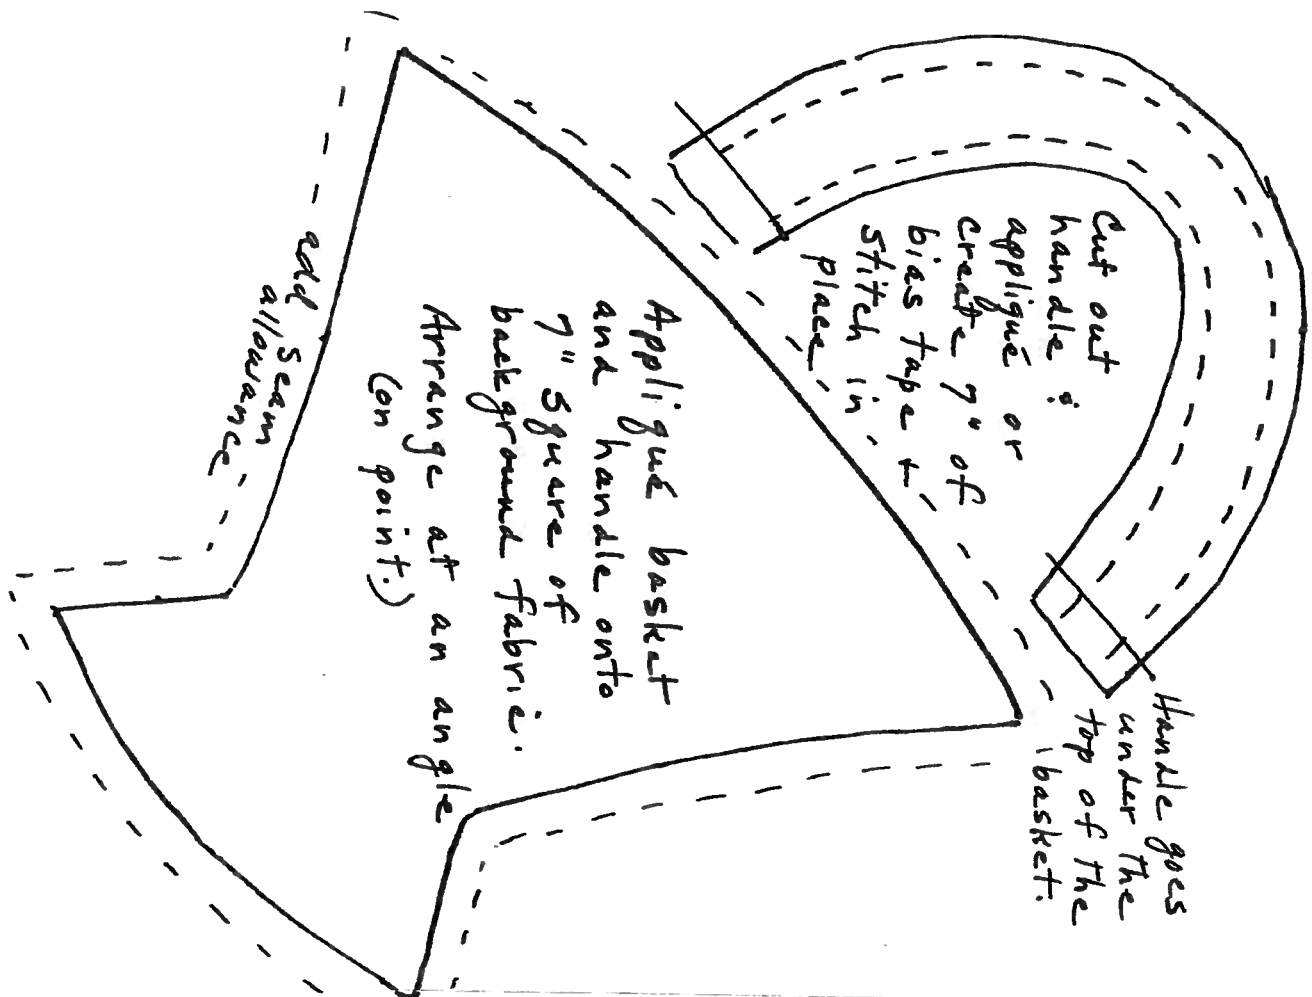 Cut out
handle &
appliqué or
create 7" of
bias tape +
stitch in
place.
Handle goes
under the
top of the
basket.
Appliqué basket
and handle onto
7" square of
background fabric.
Arrange at an angle
(on point.)
add seam
allowance